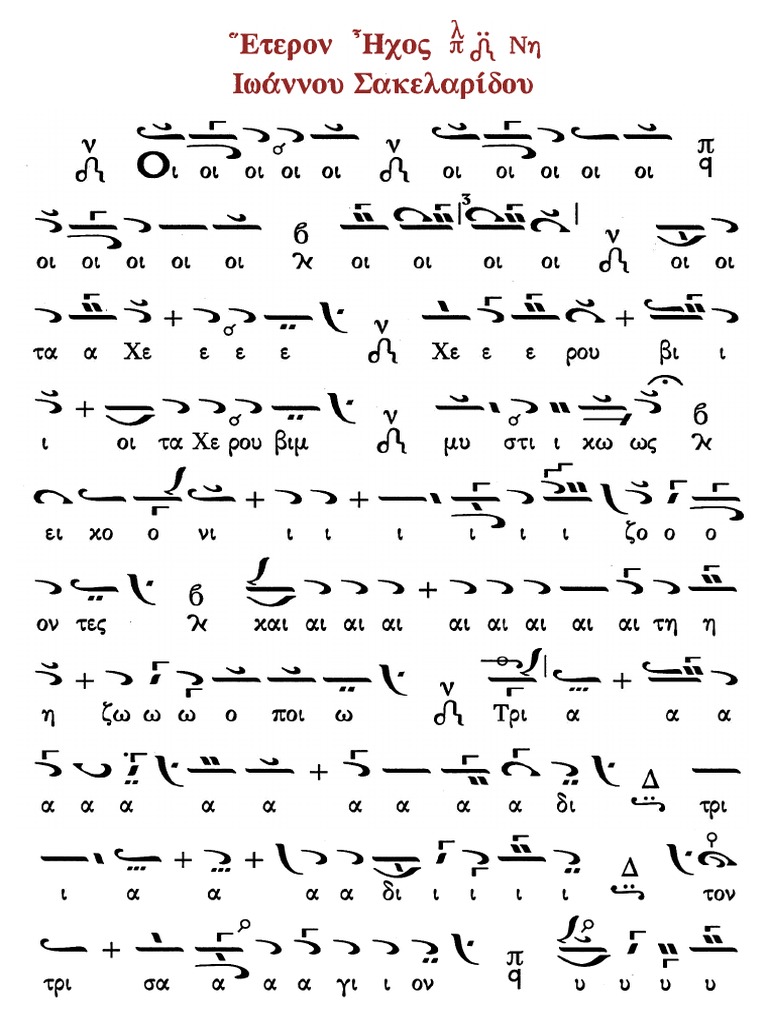 Ἕτερον Ἦχος λ π Νη
Ἰωάννου Σακελαρίδου
Οι οι οι οι οι οι οι οι οι οι
οι οι οι οι οι οι οι οι οι οι οι
τα α Χε ε ε ε Χε ε ε ρου βι ι
ι οι τα Χε ρου βιμ μυ στι ι κω ως
ει κο ο νι ι ι ι ι ι ι ζο ο ο
ον τες και αι αι αι αι αι αι αι αι τη η
η ζω ω ω ο ποι ω Τρι α α α
α α α α α α α α α δι τρι
ι α α α α δι ι ι ι ι τον
τρι σα α α α γι ι ον υ υ υ υ